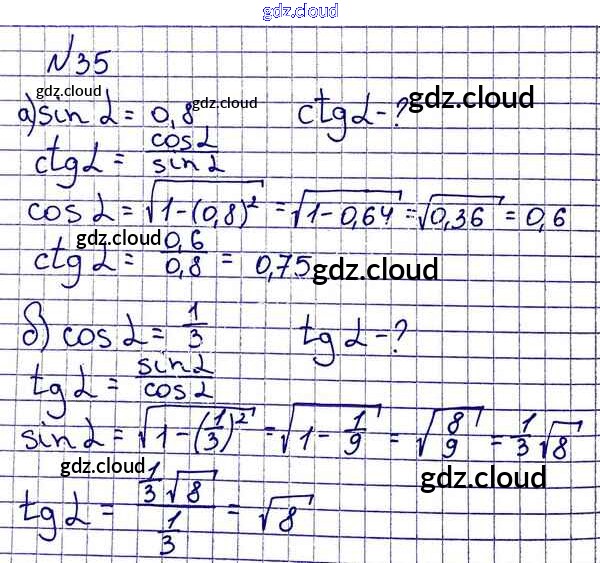 gdz.cloud
№35
gdz.cloud
а) sin α = 0,8 gdz.cloud ctg α - ? gdz.cloud
ctg α = cos α / sin α
cos α = √(1-(0,8)²) = √(1-0,64) = √0,36 = 0,6
gdz.cloud
ctg α = 0,6 / 0,8 = 0,75 gdz.cloud
б) cos α = 1/3 tg α - ?
tg α = sin α / cos α
sin α = √(1-(1/3)²) = √(1 - 1/9) = √(8/9) = 1/3 √8
gdz.cloud gdz.cloud
tg α = (1/3 √8) / (1/3) = √8